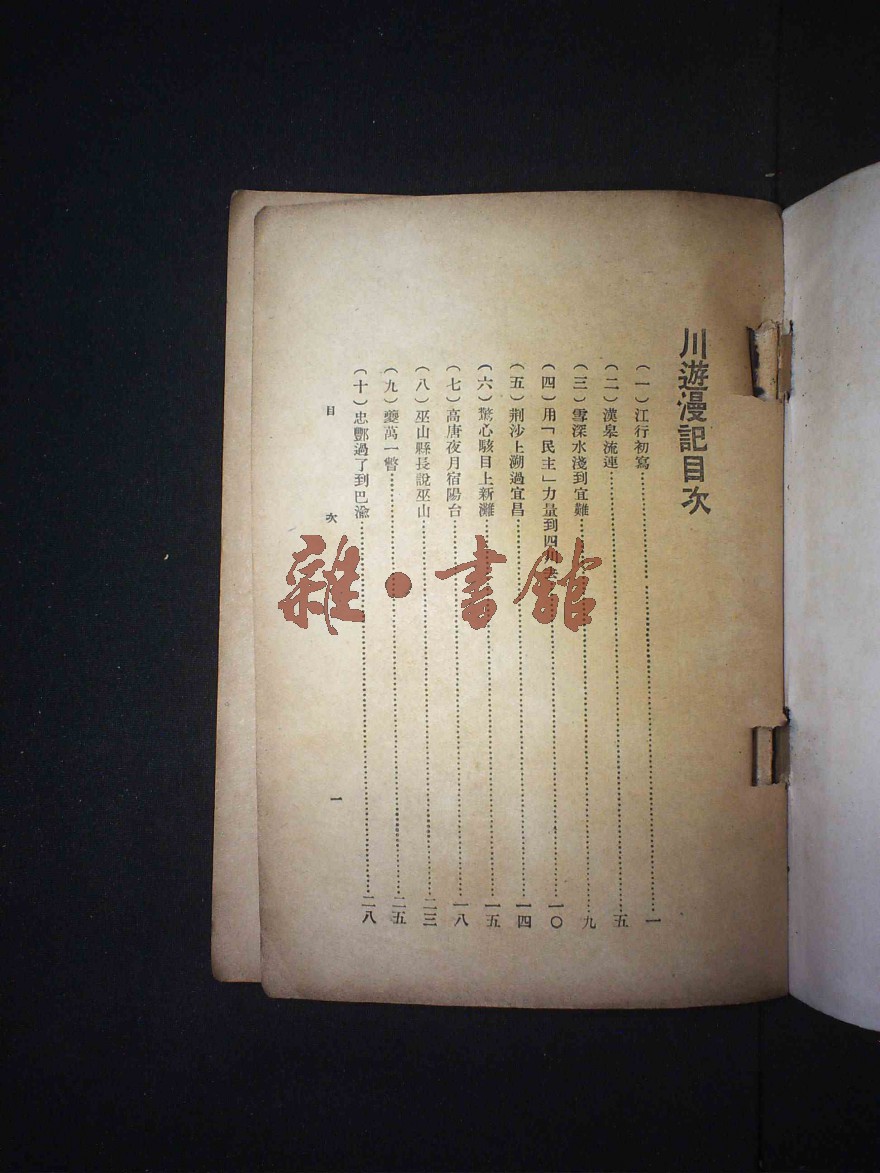 川遊漫記目次
(一)江行初寫……一
(二)漢皋流連……五
(三)雪深水淺到宜難……九
(四)用「民主」力量到四川……一〇
(五)荆沙上溯過宜昌……一四
(六)驚心駭目上新灘……一五
(七)高唐夜月宿陽台……一八
(八)巫山縣長說巫山……二三
(九)夔萬一瞥……二五
(十)忠酆過了到巴渝……二八
目次
一
雜·書館